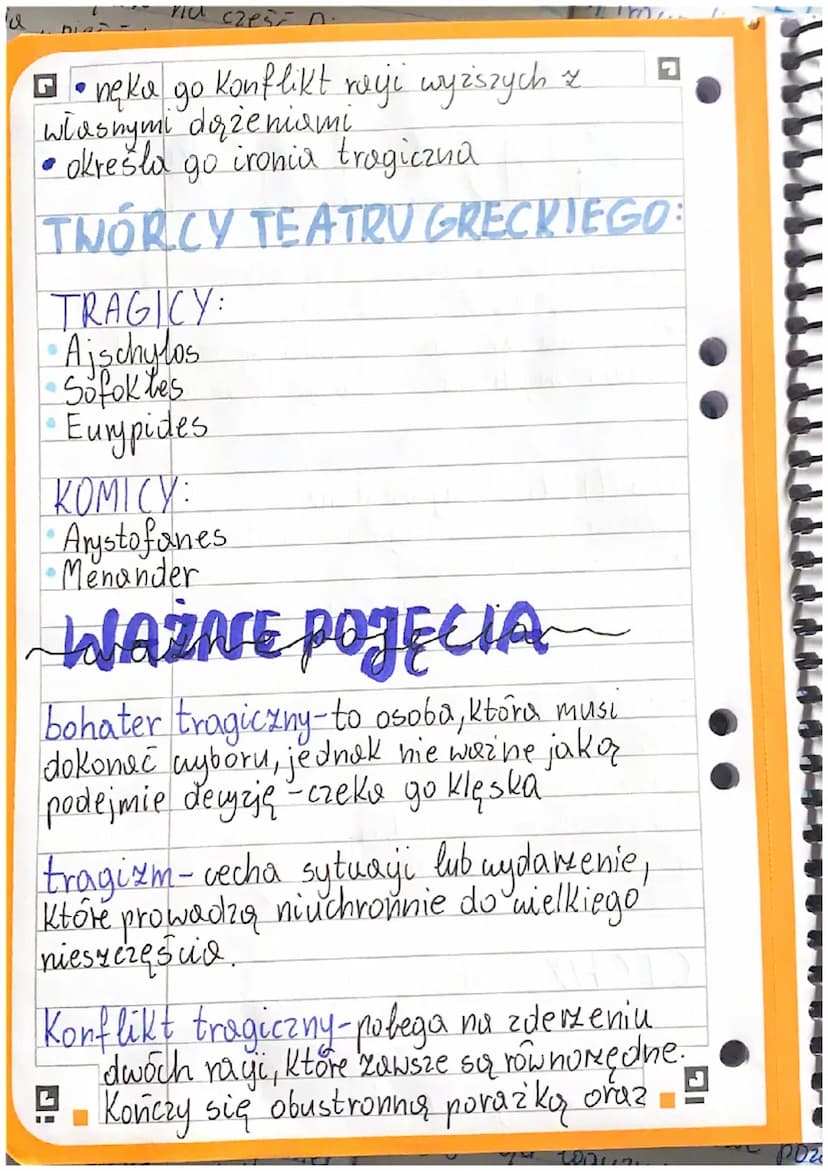 na cześć
• nęka go konflikt racji wyższych z
własnymi dążeniami
• określa go ironia tragiczna
TWÓRCY TEATRU GRECKIEGO:
TRAGICY:
• Ajschylos
• Sofokles
• Eurypides
KOMICY:
• Arystofanes
• Menander
WAŻNE POJĘCIA
ważne pojęcia
bohater tragiczny-to osoba, która musi
dokonać wyboru, jednak nie ważne jaką
podejmie decyzję -czeka go klęska
tragizm- cecha sytuacji lub wydarzenie,
które prowadzą niuchronnie do wielkiego
nieszczęścia.
Konflikt tragiczny-polega na zderzeniu
dwóch racji, które zawsze są równorzędne.
Kończy się obustronną porażką oraz